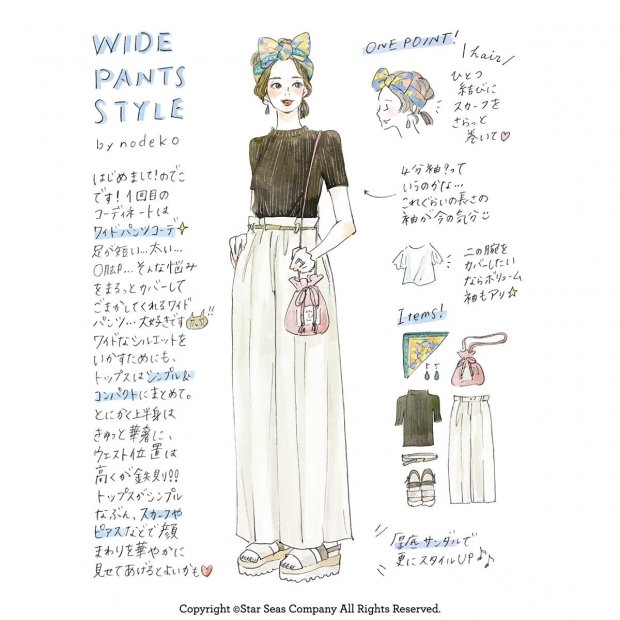 WIDE
PANTS
STYLE
by nodeko
はじめまして！のでこ
です！1回目の
コーディネートは
ワイドパンツコーデ
足が短い…太い…
O脚P…そんな悩み
をまるっとカバーして
ごまかしてくれるワイド
パンツ…大好きです!!
ワイドなシルエットを
いかすためにも、
トップスはシンプル&
コンパクトにまとめて。
とにかく上半身は
きゅっと華奢に、
ウェスト位置は
高くが鉄則!!
トップスがシンプル
なぶん、スカーフや
ピアスなどで顔
まわりを華やかに
見せてあげるとよいかも
ONE POINT!
hair
ひとつ
結びに
スカーフを
さらっと
巻いて
4分袖?って
いうのかな…
これぐらいの長さの
袖が今の気分
二の腕を
カバーしたい
ならボリューム
袖もアリ☆
Items!
厚底サンダルで
更にスタイルUP♪
Copyright ©Star Seas Company All Rights Reserved.